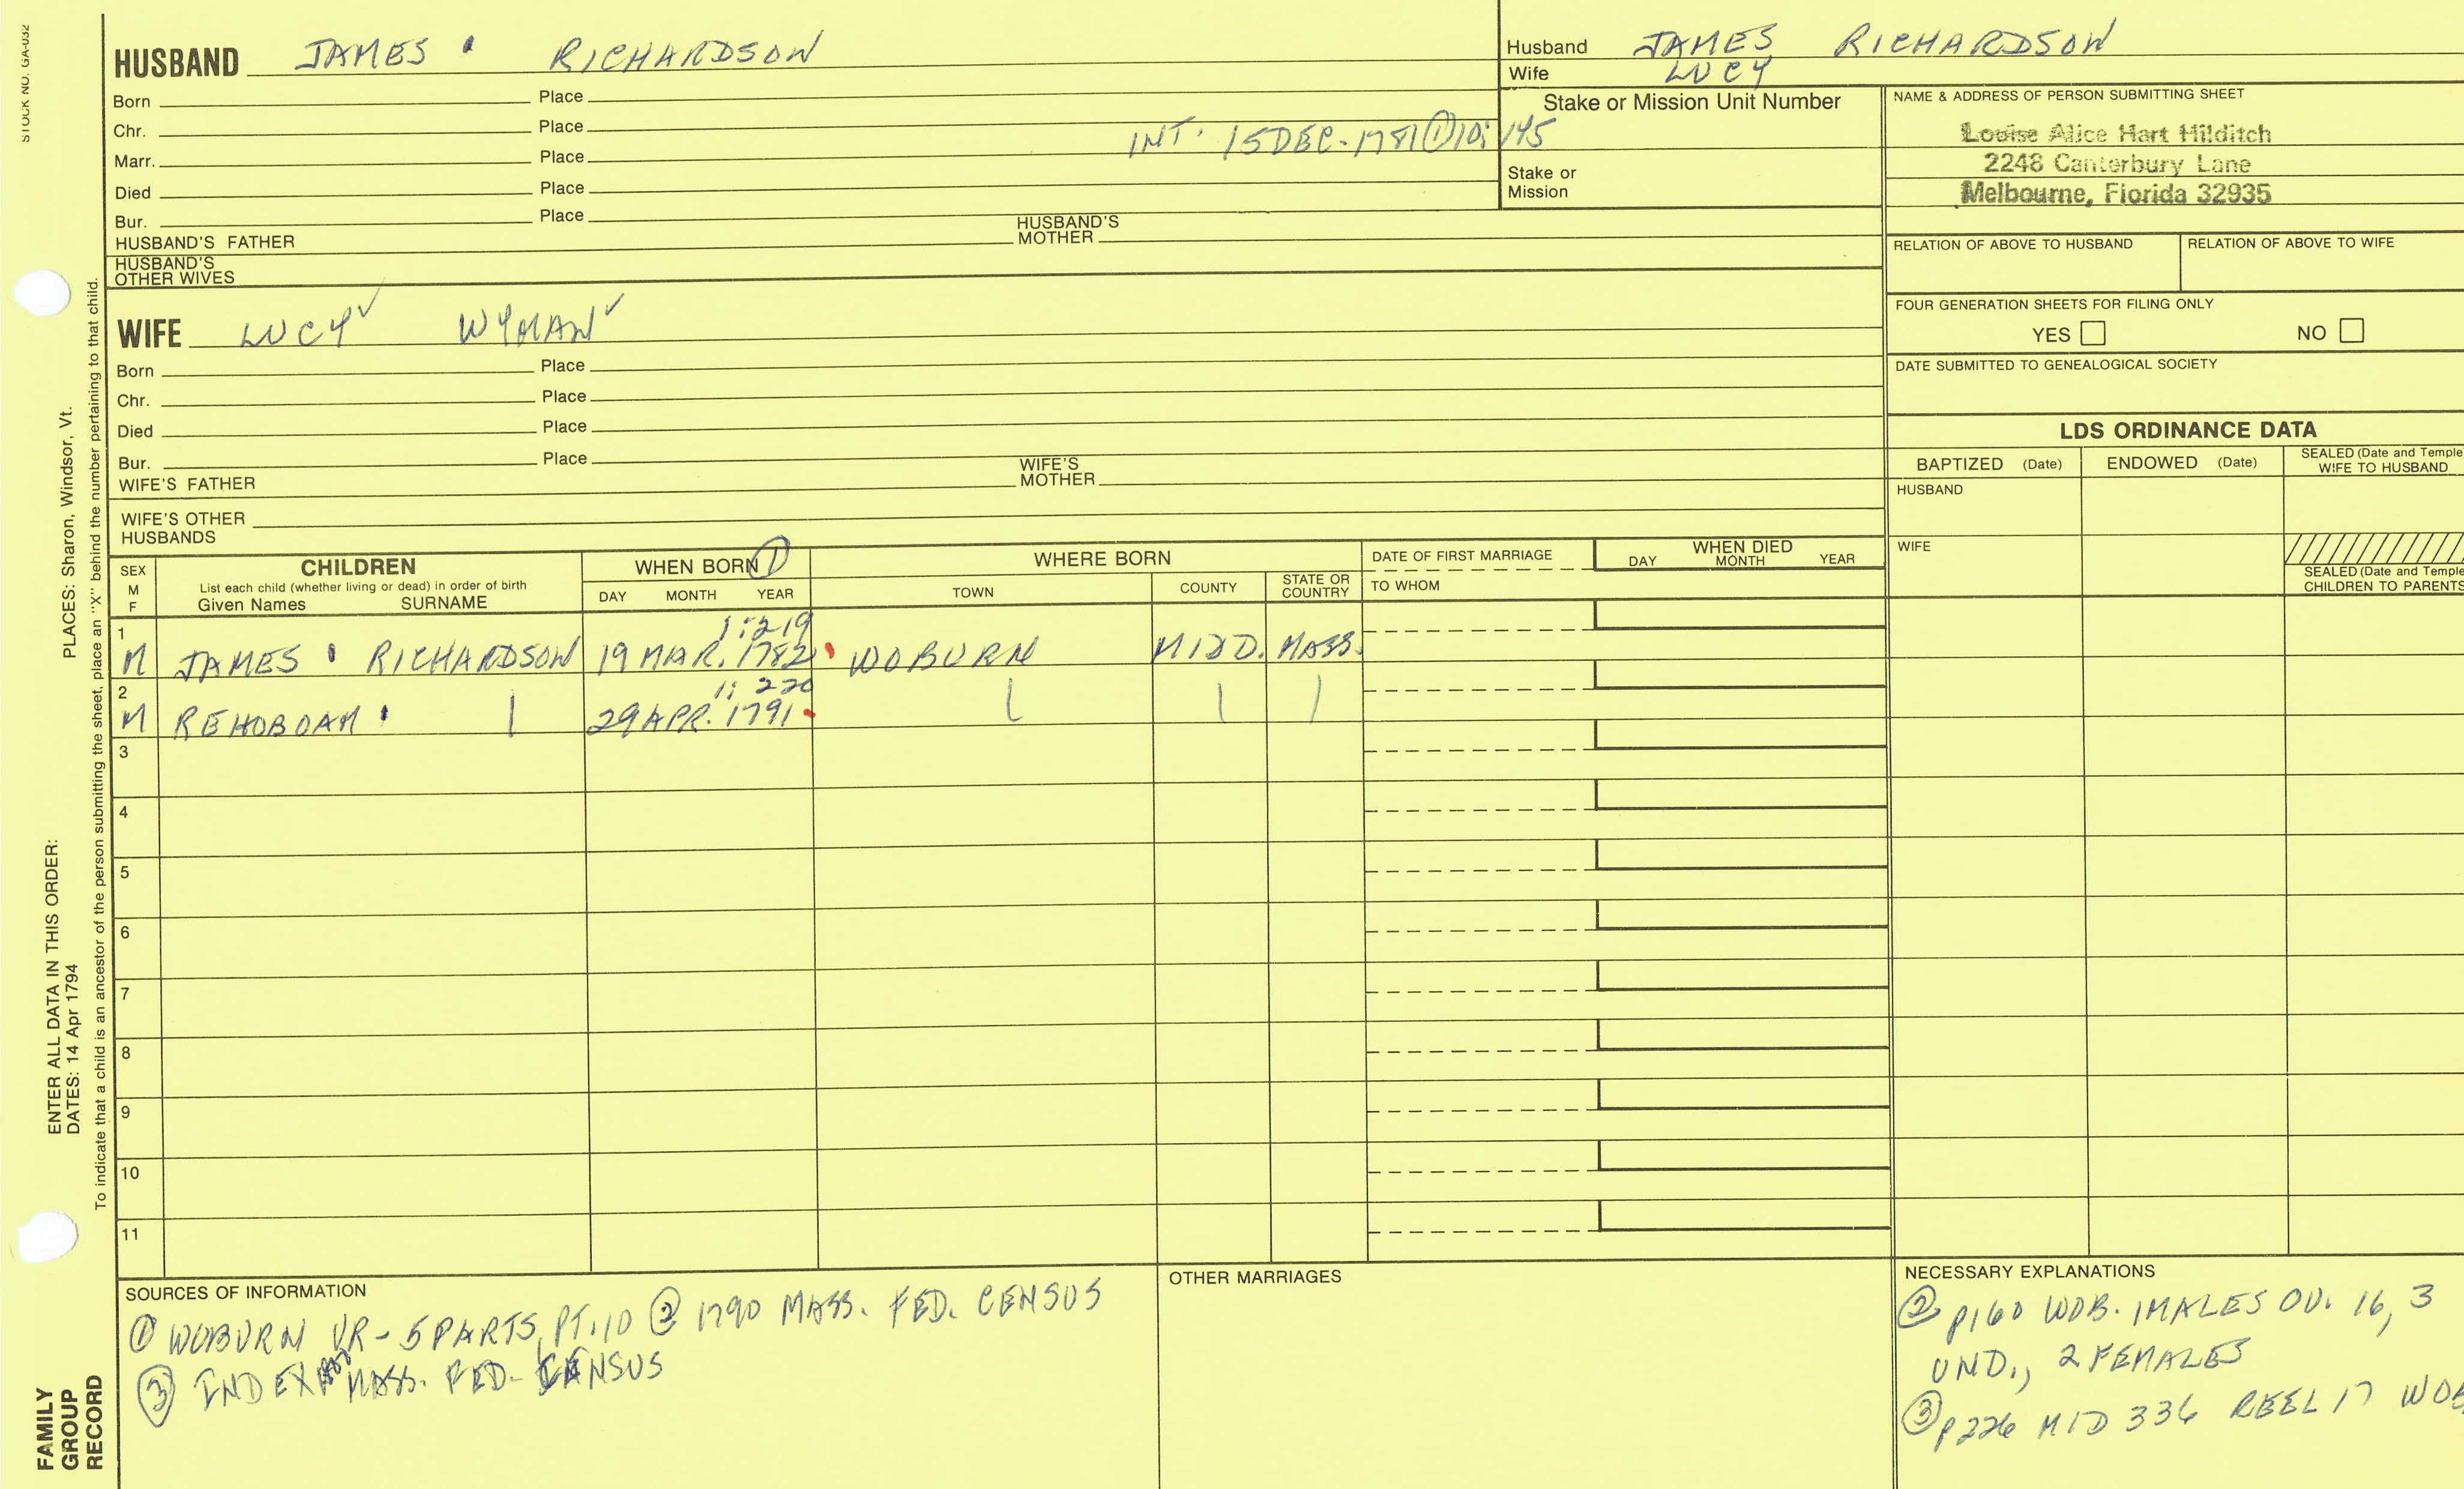 STOCK NO. GA-032
HUSBAND JAMES RICHARDSON
Born Place
Chr. Place
Marr. Place INT. 15 DEC. 1781 ① 10; 145
Died Place
Bur. Place
HUSBAND'S FATHER HUSBAND'S MOTHER
HUSBAND'S OTHER WIVES
Husband JAMES RICHARDSON
Wife LUCY
Stake or Mission Unit Number
Stake or Mission
NAME & ADDRESS OF PERSON SUBMITTING SHEET
Louise Alice Hart Hilditch
2248 Canterbury Lane
Melbourne, Florida 32935
RELATION OF ABOVE TO HUSBAND RELATION OF ABOVE TO WIFE
FOUR GENERATION SHEETS FOR FILING ONLY
YES NO
DATE SUBMITTED TO GENEALOGICAL SOCIETY
WIFE LUCY ✓ WYMAN ✓
Born Place
Chr. Place
Died Place
Bur. Place
WIFE'S FATHER WIFE'S MOTHER
WIFE'S OTHER HUSBANDS
LDS ORDINANCE DATA
BAPTIZED (Date) ENDOWED (Date) SEALED (Date and Temple
WIFE TO HUSBAND
HUSBAND
WIFE
SEALED (Date and Temple
CHILDREN TO PARENTS
SEX M F
CHILDREN
List each child (whether living or dead) in order of birth
Given Names SURNAME
WHEN BORN ①
DAY MONTH YEAR
WHERE BORN
TOWN COUNTY STATE OR COUNTRY
DATE OF FIRST MARRIAGE
TO WHOM
WHEN DIED
DAY MONTH YEAR
1 1:219
M JAMES RICHARDSON 19 MAR. 1782 WOBURN MIDD. MASS.
2 1; 220
M REHOBOAM | 29 APR. 1791 | | |
3
4
5
6
7
8
9
10
11
SOURCES OF INFORMATION
① WOBURN VR - 5 PARTS, PT. 10 ② 1790 MASS. FED. CENSUS
③ INDEX MASS. FED. CENSUS
OTHER MARRIAGES
NECESSARY EXPLANATIONS
② P160 WOB. 1 MALES OV. 16, 3
UND., 2 FEMALES
③ P226 MID 336 REEL 17 WOB
ENTER ALL DATA IN THIS ORDER:
DATES: 14 Apr 1794 PLACES: Sharon, Windsor, Vt.
To indicate that a child is an ancestor of the person submitting the sheet, place an "X" behind the number pertaining to that child.
FAMILY
GROUP
RECORD